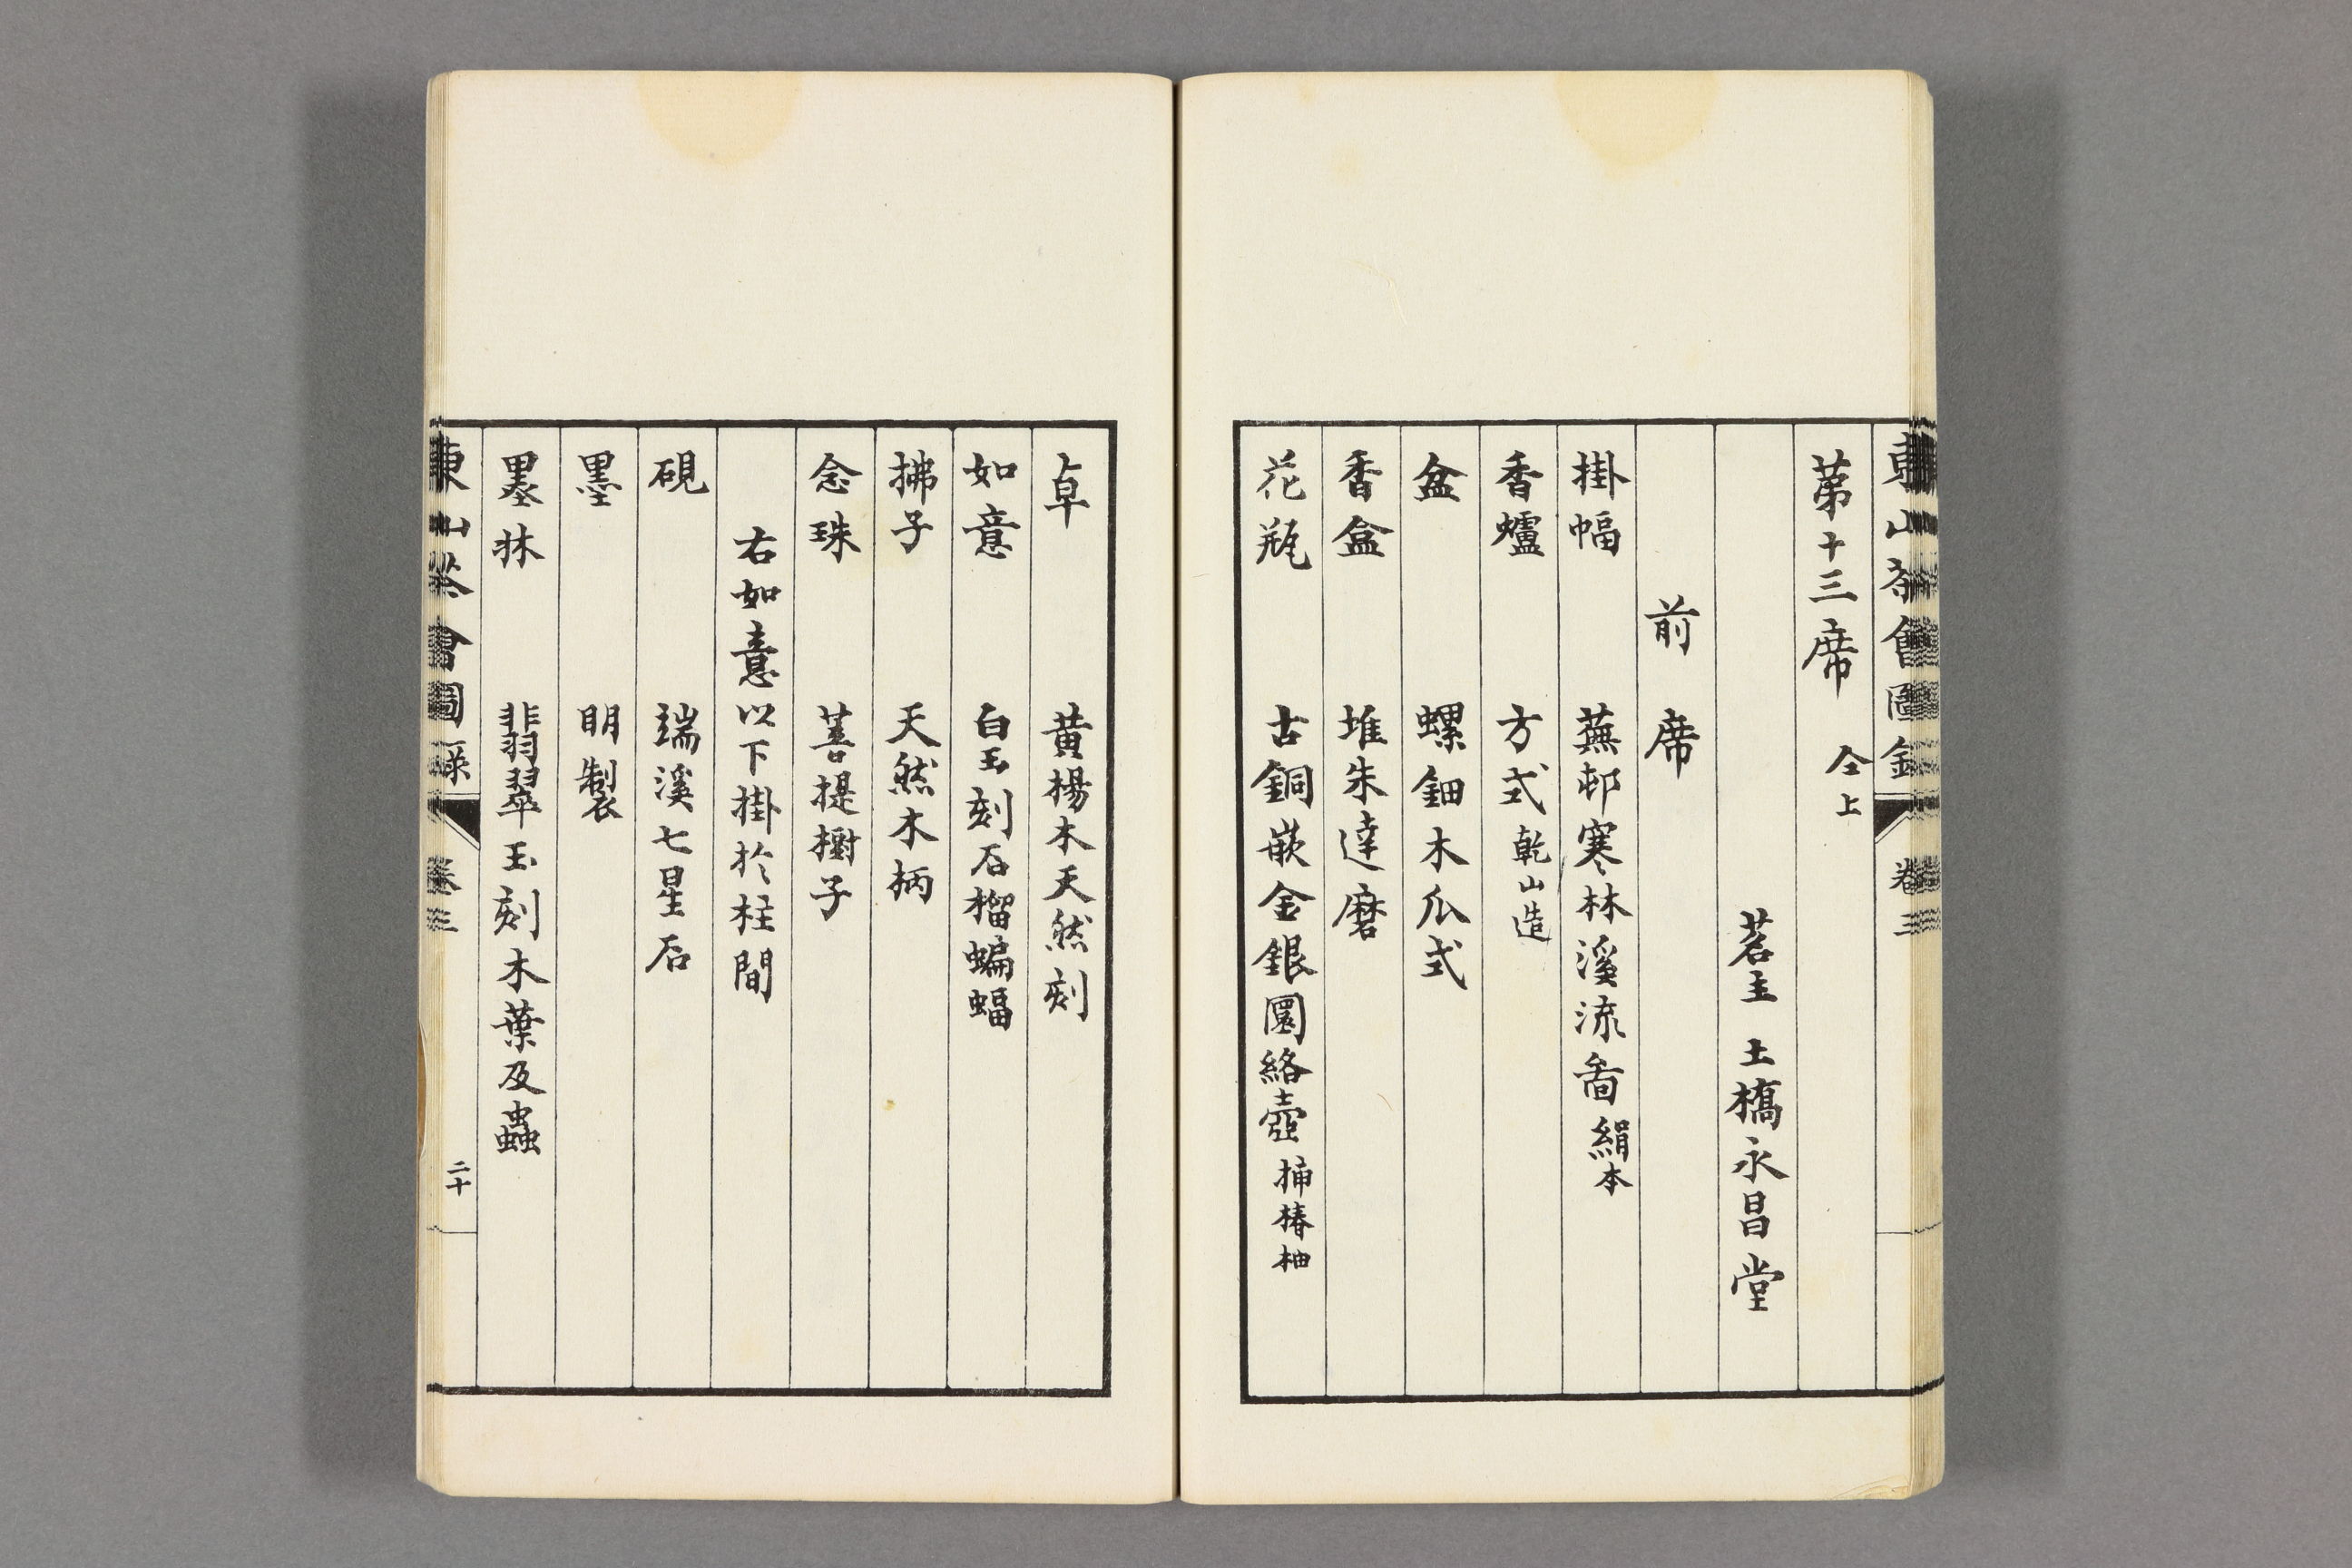 東山茶會圖錄 卷三
第十三席 仝上
茗主 土橋永昌堂
前席
掛幅 蕪邨寒林溪流啚 絹本
香爐 方式 乾山造
盆 螺鈿木瓜式
香盒 堆朱達磨
花瓶 古銅嵌金銀圜絡壺 插椿柚
卓 黄楊木天然刻
如意 白玉刻石榴蝙蝠
拂子 天然木柄
念珠 菩提樹子
右如意以下掛於柱間
硯 端溪七星石
墨 明製
墨牀 翡翠玉刻木葉及蟲
東山茶會圖録 卷三 二十